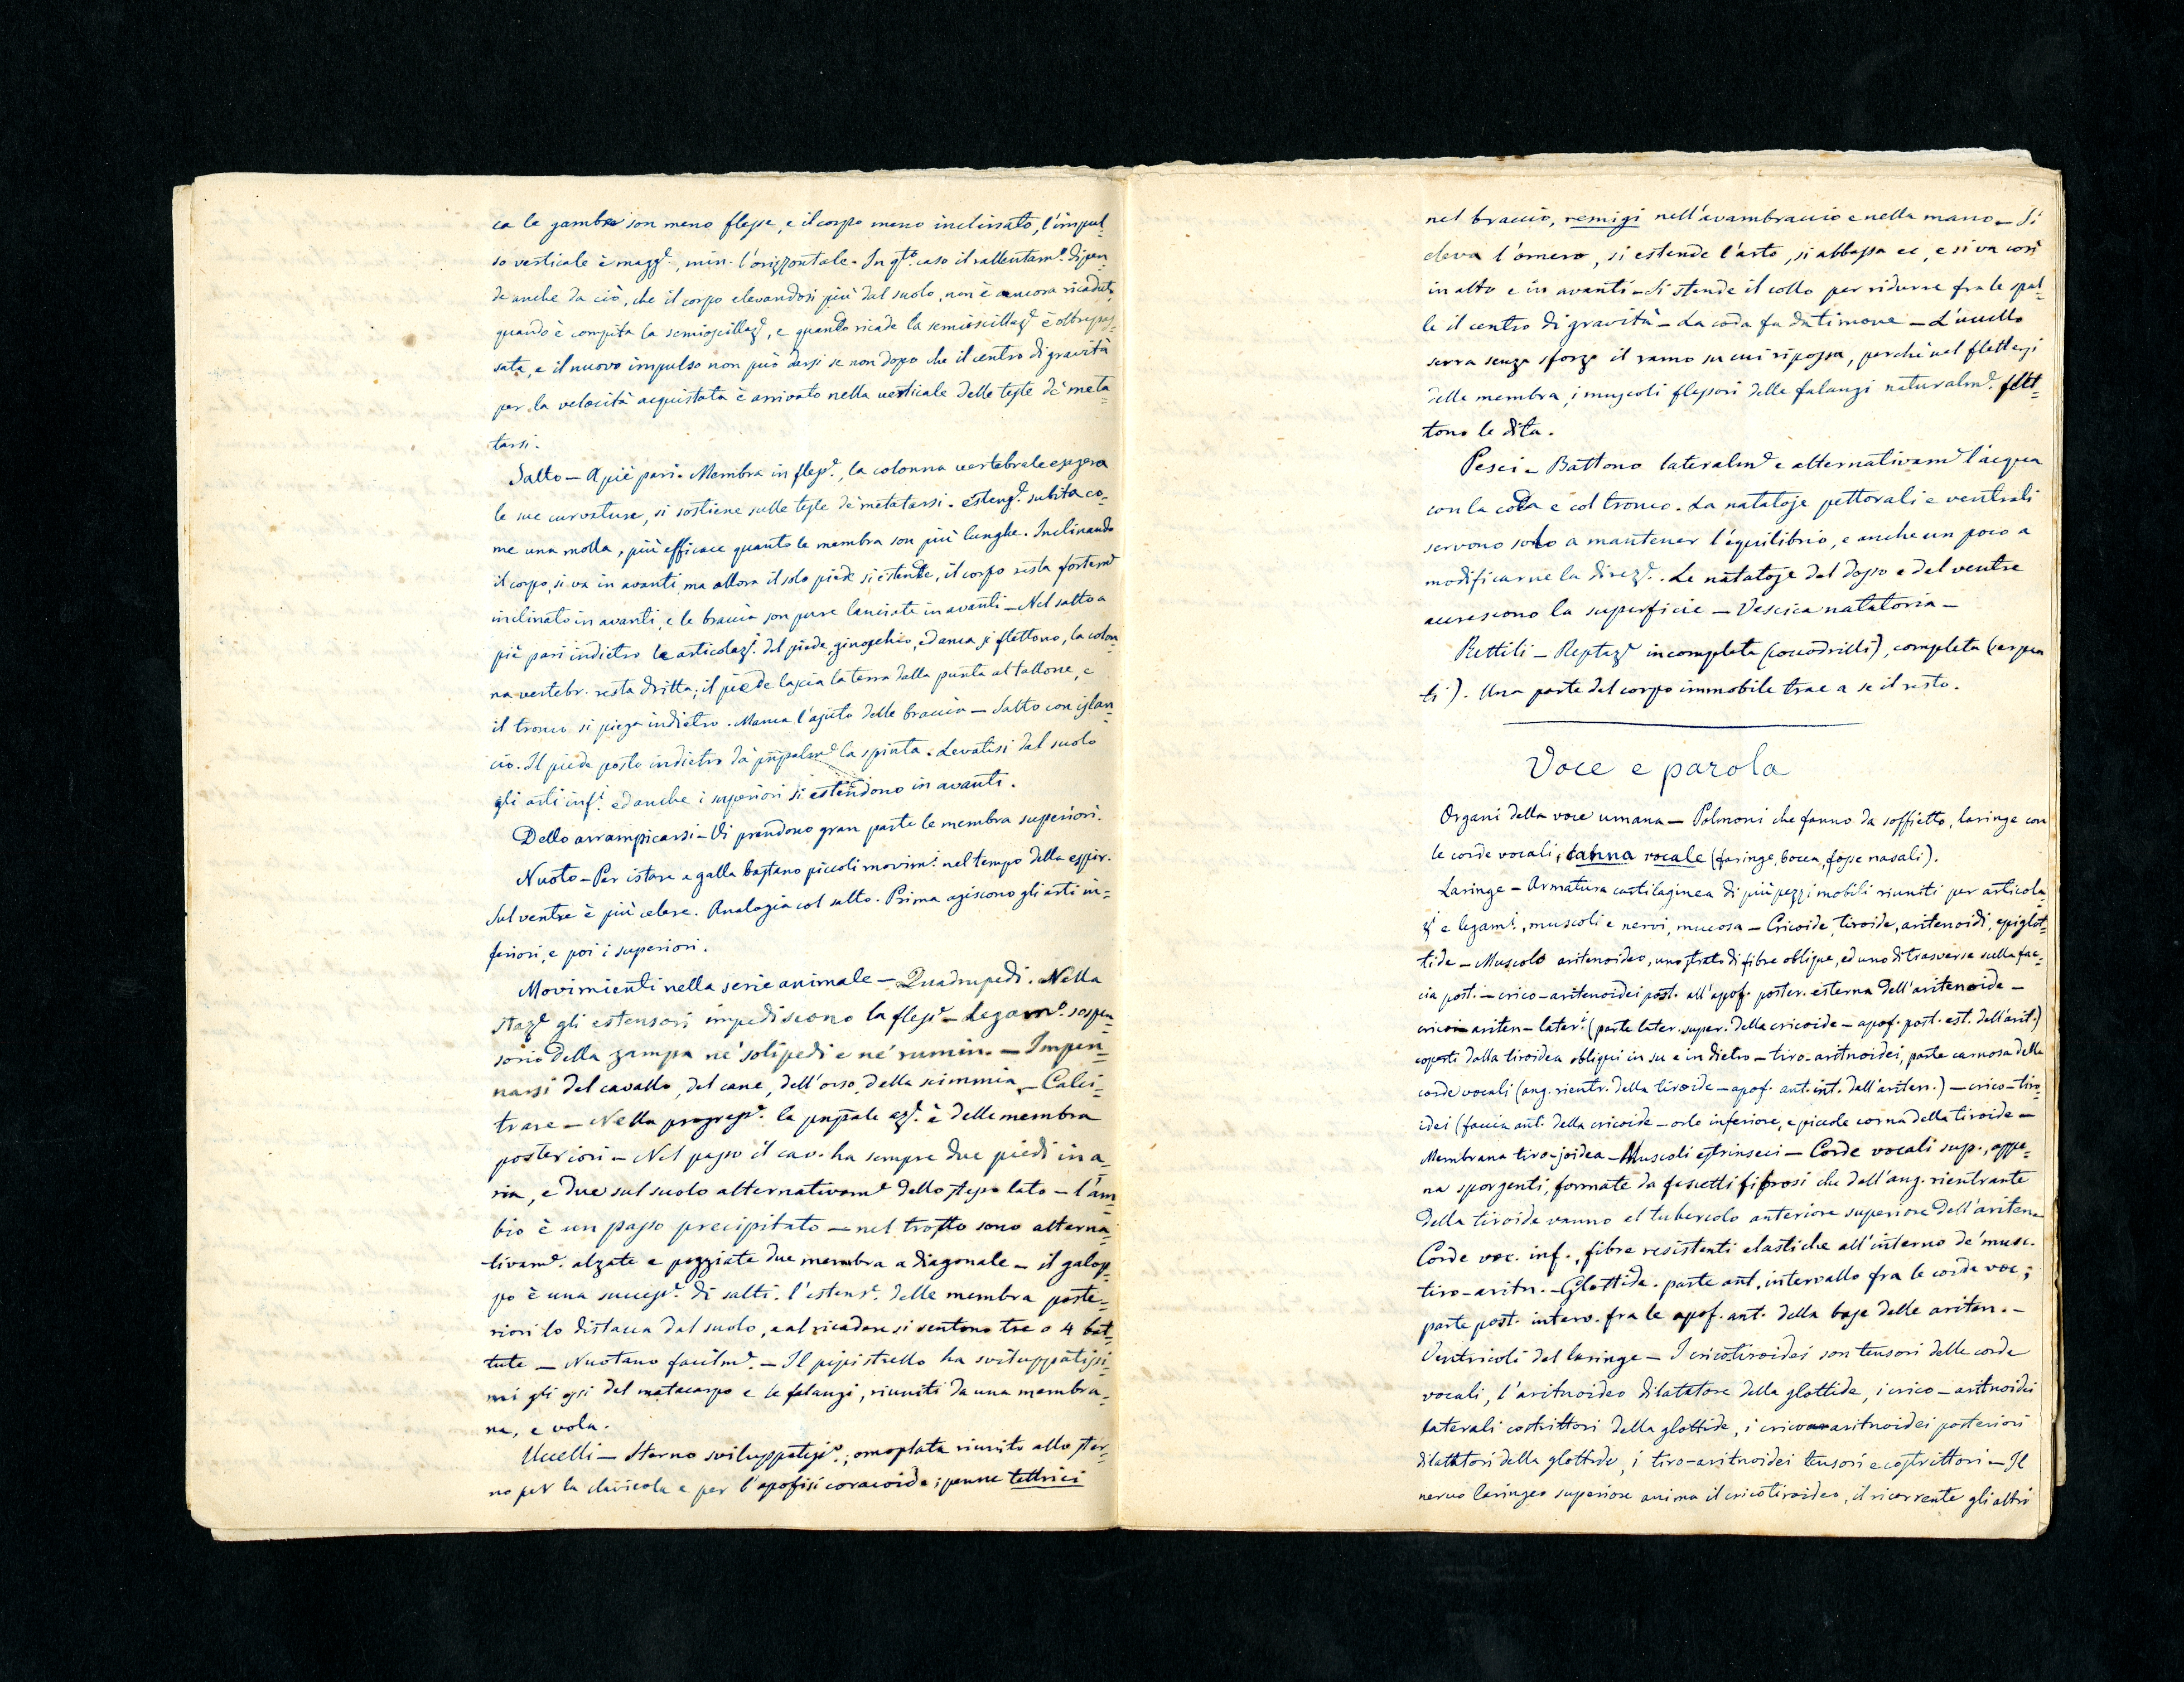 ca le gambe son meno flesse, e il corpo meno inclinato, l'impul=
so verticale è magg.e, min. l'orizzontale. In q.to caso il rallentam.o dipen=
de anche da ciò, che il corpo elevandosi più dal suolo, non è ancora ricaduto,
quando è compita la semioscillaz.e, e quando ricade la semioscillaz.e è oltrepas=
sata, e il nuovo impulso non può darsi se non dopo che il centro di gravità
per la velocità acquistata è arrivato nella verticale delle teste de' meta=
tarsi.
Salto — A piè pari. Membra in fless.e, la colonna vertebrale esagera
le sue curvature, si sostiene sulle teste de' metatarsi. estens.e subita co=
me una molla, più efficace quanto le membra son più lunghe. Inclinando
il corpo, si va in avanti, ma allora il solo piede si estende, il corpo resta fortem.e
inclinato in avanti, e le braccia son pure lanciate in avanti — Nel salto a
piè pari indietro le articolaz.i del piede, ginocchio, ed anca si flettono, la colon=
na vertebr. resta dritta; il piede lascia la terra dalla punta al tallone, e
il tronco si piega indietro. Manca l'ajuto delle braccia — Salto con islan=
cio. Il piede posto indietro dà pnpalm.e la spinta. Levatisi dal suolo
gli arti inf.i ed anche i superiori si estendono in avanti.
Dello arrampicarsi — Vi prendono gran parte le membra superiori.
Nuoto — Per istare a galla bastano piccoli movim.i nel tempo della espir.
Sul ventre è più celere. Analogia col salto. Prima agiscono gli arti in=
feriori, e poi i superiori.
Movimienti nella serie animale — Quadrupedi. Nella
staz.e gli estensori impediscono la fless.e — Legam.o sospen=
sorio della zampa ne' solipedi e ne' rumin. — Impen=
narsi del cavallo, del cane, dell'orso, della scimmia — Calci=
trare — Nella progress.e la pnpale az.e è delle membra
posteriori — Nel passo il cav. ha sempre due piedi in a=
ria, e due sul suolo alternativam.e dello stesso lato — l'am=
bio è un passo precipitato — nel trotto sono alterna=
tivam.e alzate e poggiate due membra a diagonale — il galop=
po è una success.e di salti. l'estens.e delle membra poste=
riori lo distacca dal suolo, e al ricadere si sentono tre o 4 bat=
tute — Nuotano facilm.e — Il pipistrello ha sviluppatissi=
mi gli ossi del metacarpo e le falangi, riuniti da una membra=
na, e vola.
Uccelli — Sterno sviluppatiss.o; omoplata riunito allo ster=
no per la clavicola e per l'apofisi coracoide; penne tettrici
nel braccio, remigi nell'avambraccio e nella mano — Si
eleva l'omero, si estende l'arto, si abbassa ec, e si va così
in alto e in avanti — Si stende il collo per ridurre fra le spal=
le il centro di gravità — La coda fa da timone — L'uccello
serra senza sforzo il ramo su cui riposa, perchè nel flettersi
delle membra, i muscoli flessori delle falangi naturalm.e flet=
tono le dita.
Pesci — Battono lateralm.e e alternativam.e l'acqua
con la coda e col tronco. La natatoje pettorali e ventrali
servono solo a mantener l'equilibrio, e anche un poco a
modificarne la direz.e. Le natatoje del dosso e del ventre
accrescono la superficie — Vescica natatoria —
Rettili — Reptaz.e incompleta (coccodrilli), completa (serpen
ti). Una parte del corpo immobile trae a se il resto.
Voce e parola
Organi della voce umana — Polmoni che fanno da soffietto, laringe con
le corde vocali, canna vocale (faringe, bocca, fosse nasali).
Laringe — Armatura cartilaginea di più pezzi mobili riuniti per articola
z.i e legam.i, muscoli e nervi, mucosa — Cricoide, tiroide, aritenoidi, epiglot=
tide — Muscolo aritenoideo, uno strato di fibre oblique, ed uno di trasverse sulla fac=
cia post. — crico-aritenoidei post. all'apof. poster. esterna dell'aritenoide —
crico-ariten-later.i (parte later. super. della cricoide — apof. post. est. dell'arit.)
coperti dalla tiroidea obliqui in su e in dietro — tiro-aritnoidei, parte carnosa delle
corde vocali (ang. rientr. della tiroide — apof. ant. int. dell'ariten.) — crico-tiro=
idei (faccia ant. della cricoide — orlo inferiore, e piccole corna della tiroide —
Membrana tiro-joidea — Muscoli estrinseci — Corde vocali sup., appe=
na sporgenti, formate da fascetti fibrosi che dall'ang. rientrante
della tiroide vanno al tubercolo anteriore superiore dell'ariten
Corde voc. inf., fibre resistenti elastiche all'interno de' musc.
tiro-aritn. — Glottide. parte ant. intervallo fra le corde voc.;
parte post. interv. fra le apof. ant. della base delle ariten. —
Ventricoli del laringe — I cricotiroidei son tensori delle corde
vocali, l'aritnoideo dilatatore della glottide, i crico-aritnoidei
laterali costrittori della glottide, i crico aritnoidei posteriori
dilatatori della glottide, i tiro-aritnoidei tensori e costrittori — Il
nervo laringeo superiore anima il cricotiroideo, il ricorrente gli altri